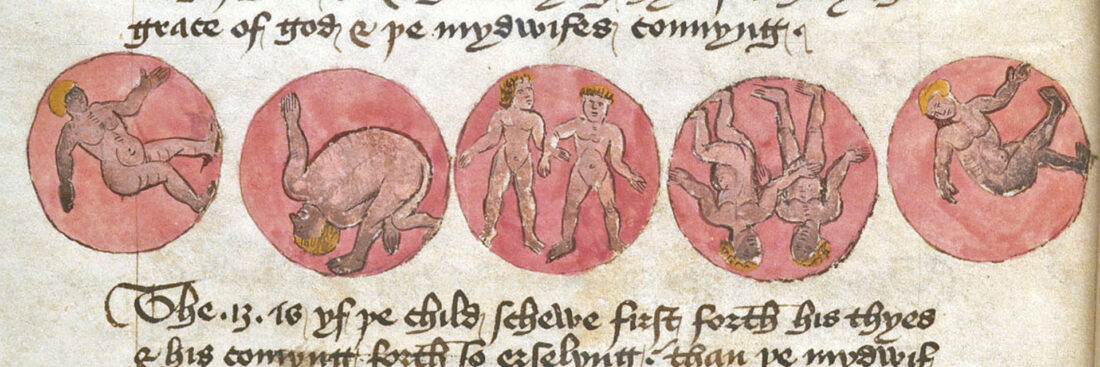 grace of god & þe mydwifes connyng.
The .13. is yf þe child schewe first forth his thyes
& his comyng forth so erselyng: than þe mydwif